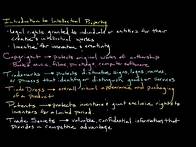 Introduction to Intellectual Property
- Legal rights granted to individuals or entities for their creative & intellectual works
- Incentive for innovation & creativity
Copyright → Protects original works of authorship
Books, music, films, paintings, computer software
Trademarks → protects distinctive signs, logos, names, or phrases which identify or distinguish goods or services
Trade Dress → overall visual appearance and packaging of a product
Patents → protects inventions & grant exclusive rights to inventors for a limited period.
Trade Secrets → valuable, confidential information that provides a competitive advantage